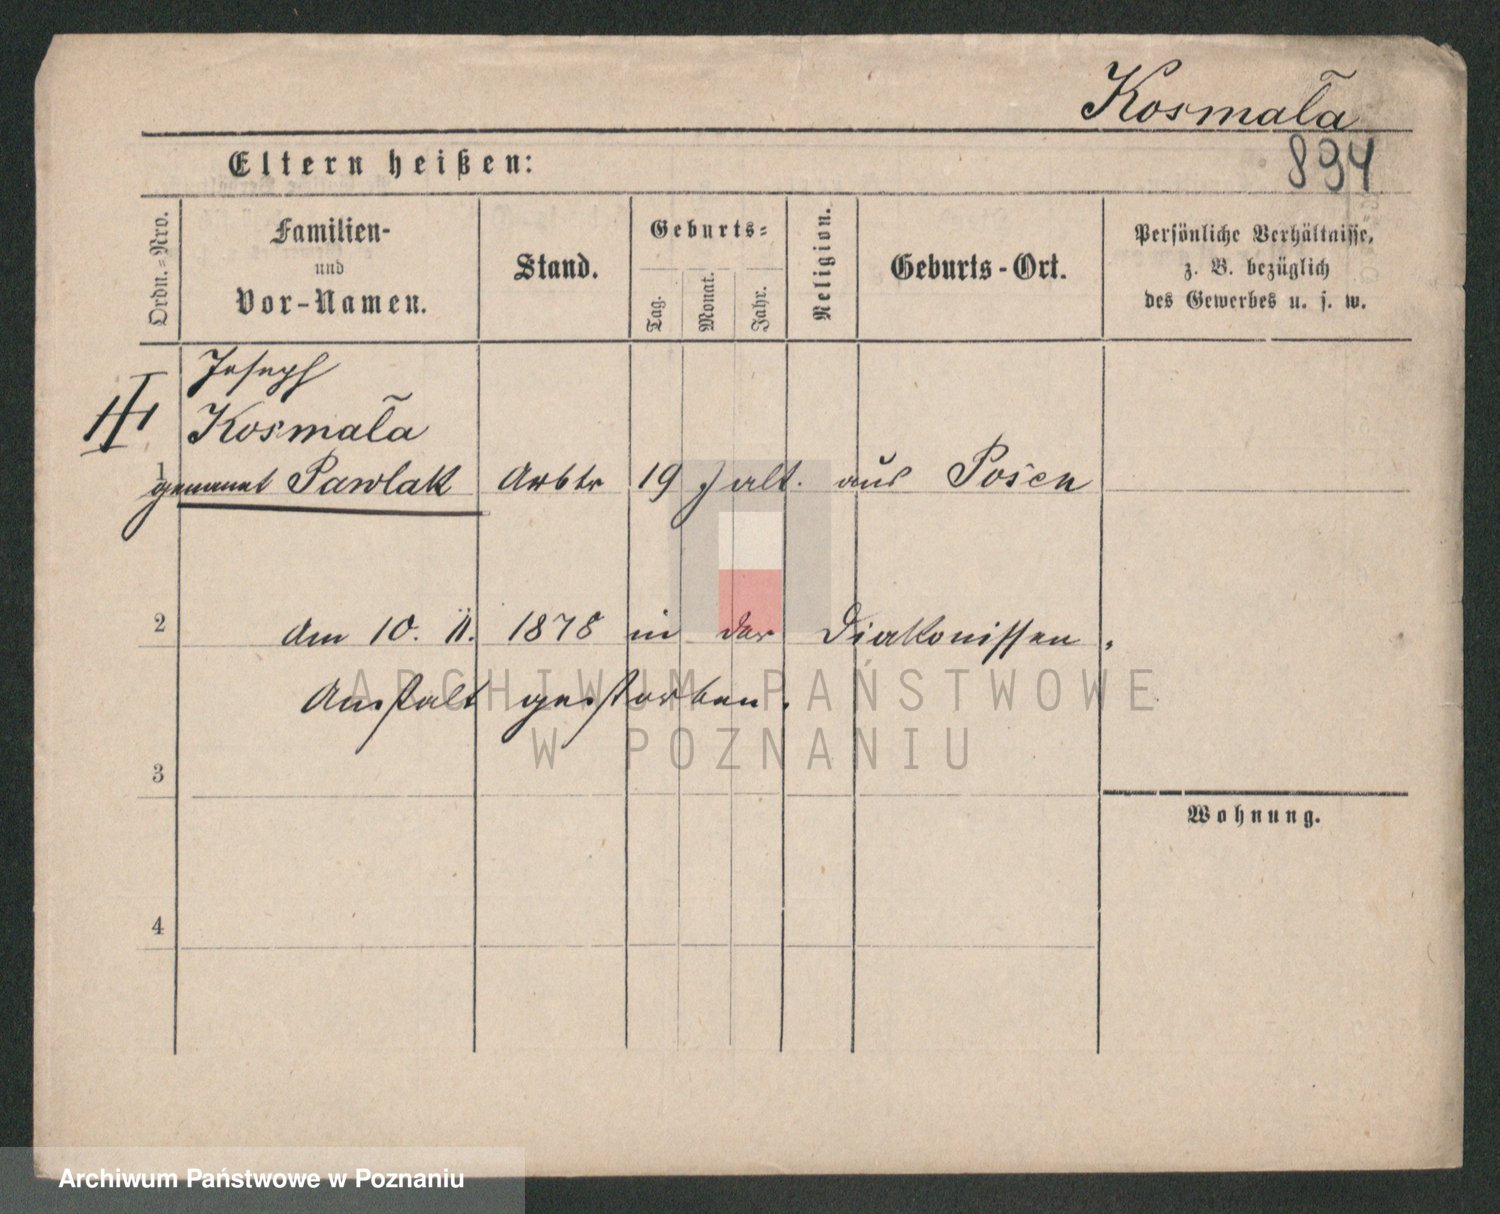 Kosmala
894
Eltern heißen:
Ordn.=Nro.
Familien-
und
Vor-Namen.
Stand.
Geburts=
Tag.
Monat.
Jahr.
Religion.
Geburts-Ort.
Persönliche Verhältnisse,
z. B. bezüglich
des Gewerbes u. s. w.
Joseph
Kosmala
1
genannt Pawlak Arbtr 19 J alt. aus Posen
2
Am 10. 11. 1878 in der Diakonissen
Anstalt gestorben.
ARCHIWUM PAŃSTWOWE
W POZNANIU
3
Wohnung.
4
Archiwum Państwowe w Poznaniu